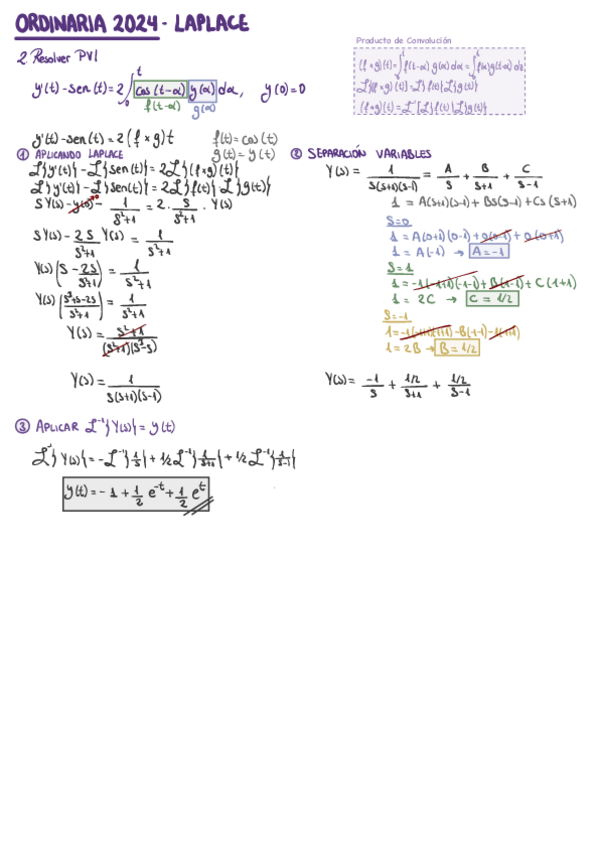 ORDINARIA 2024 - LAPLACE
Producto de Convolución
(f * g)(t) = ∫₀ᵗ f(t-α) g(α) dα = ∫₀ᵗ f(α) g(t-α) dα
ℒ{(f * g)(t)} = ℒ{f(t)} ℒ{g(t)}
(f * g)(t) = ℒ⁻¹{ℒ{f(t)} ℒ{g(t)}}
2. Resolver PVI
y'(t) - sen(t) = 2 ∫₀ᵗ cos(t-α) y(α) dα, y(0) = 0
f(t-α) g(α)
y'(t) - sen(t) = 2(f * g)t f(t) = cos(t)
① APLICANDO LAPLACE g(t) = y(t)
ℒ{y'(t)} - ℒ{sen(t)} = 2ℒ{(f * g)(t)}
ℒ{y'(t)} - ℒ{sen(t)} = 2ℒ{f(t)} · ℒ{g(t)}
SY(s) - y(0) - 1/(S²+1) = 2 · S/(S²+1) · Y(s)
SY(s) - 2S/(S²+1) Y(s) = 1/(S²+1)
Y(s) (S - 2S/(S²+1)) = 1/(S²+1)
Y(s) ((S³+S-2S)/(S²+1)) = 1/(S²+1)
Y(s) = (S²+1)/((S²+1)(S³-S))
Y(s) = 1/(S(S+1)(S-1))
② SEPARACIÓN VARIABLES
Y(s) = 1/(S(S+1)(S-1)) = A/S + B/(S+1) + C/(S-1)
1 = A(S+1)(S-1) + BS(S-1) + CS(S+1)
S=0
1 = A(0+1)(0-1) + 0(0-1) + 0(0+1)
1 = A(-1) → A = -1
S=1
1 = -1(-1+1)(-1-1) + B(1-1) + C(1+1)
1 = 2C → C = 1/2
S=-1
1 = -1(-1+1) - B(-1-1) - 1(1+1)
1 = 2B → B = 1/2
Y(s) = -1/S + (1/2)/(S+1) + (1/2)/(S-1)
③ APLICAR ℒ⁻¹{Y(s)} = y(t)
ℒ⁻¹{Y(s)} = -ℒ⁻¹{1/S} + 1/2 ℒ⁻¹{1/(S+1)} + 1/2 ℒ⁻¹{1/(S-1)}
y(t) = -1 + 1/2 e⁻ᵗ + 1/2 eᵗ